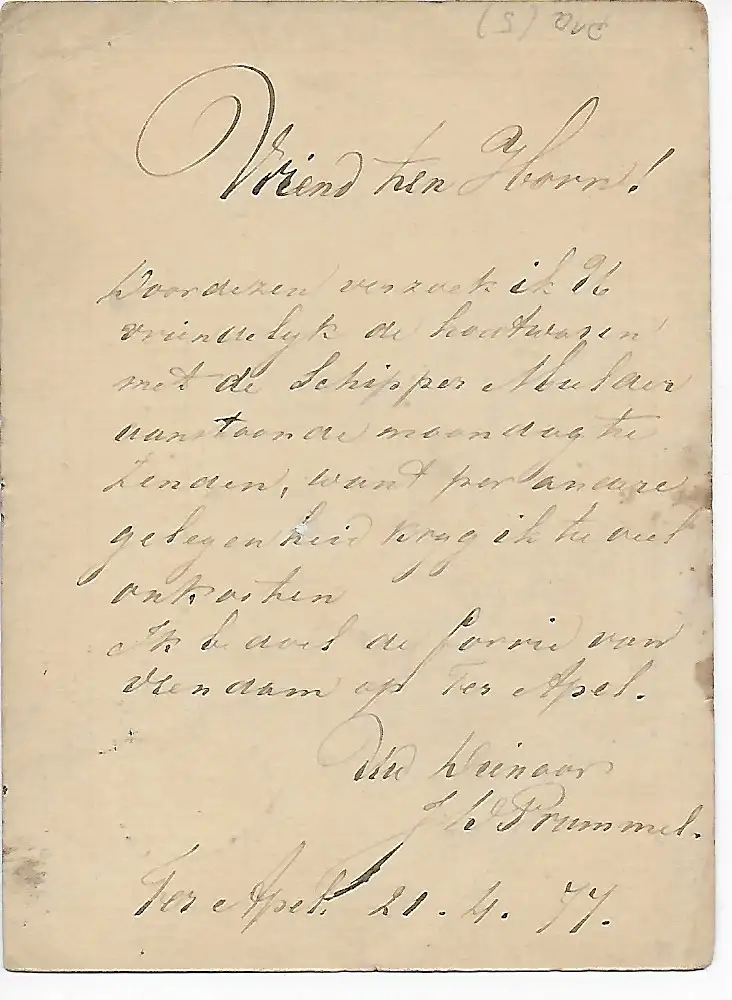 Vriend ten Horn!
Doordezen verzoek ik U
vriendelyk de houtwaren
met de Schipper Mulder
aanstaande maandag te
zenden, want per andere
gelegenheid kryg ik te veel
onkosten
Ik bedoel de Corrie van
Veendam op Ter Apel.
Uw Dienaar
J W Prummel.
Ter Apel. 21. 4. 77.